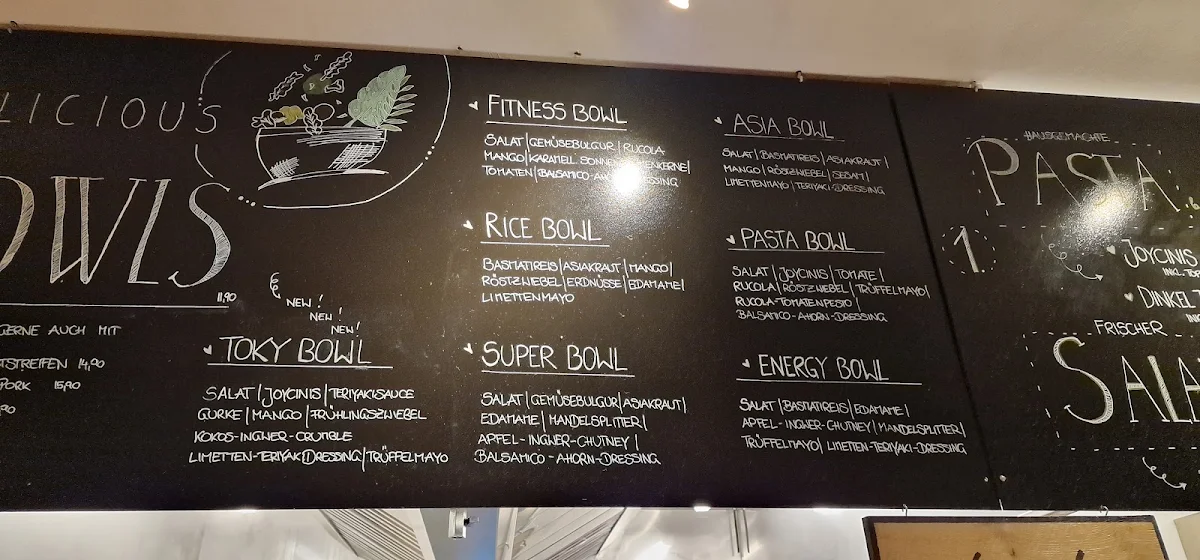 LICIOUS
OWLS
11,90
GERNE AUCH MIT
TSTREIFEN 14,90
PORK 15,90
,90
NEW!
NEW!
NEW!
TOKY BOWL
SALAT | JOYCINIS | TERIYAKISAUCE
GURKE | MANGO | FRÜHLINGSZWIEBEL
KOKOS-INGWER-CRUMBLE
LIMETTEN-TERIYAKIDRESSING | TRÜFFELMAYO
FITNESS BOWL
SALAT | GEMÜSEBULGUR | RUCOLA
MANGO | KARAMELL. SONNENBLUMENKERNE |
TOMATEN | BALSAMICO-AHORN-DRESSING
RICE BOWL
BASMATIREIS | ASIAKRAUT | MANGO |
RÖSTZWIEBEL | ERDNÜSSE | EDAMAME |
LIMETTENMAYO
SUPER BOWL
SALAT | GEMÜSEBULGUR | ASIAKRAUT |
EDAMAME | MANDELSPLITTER |
APFEL-INGWER-CHUTNEY |
BALSAMICO-AHORN-DRESSING
ASIA BOWL
SALAT | BASMATIREIS | ASIAKRAUT |
MANGO | RÖSTZWIEBEL | SESAM |
LIMETTENMAYO | TERIYAKI-DRESSING
PASTA BOWL
SALAT | JOYCINIS | TOMATE |
RUCOLA | RÖSTZWIEBEL | TRÜFFELMAYO |
RUCOLA-TOMATENPESTO |
BALSAMICO-AHORN-DRESSING
ENERGY BOWL
SALAT | BASMATIREIS | EDAMAME |
APFEL-INGWER-CHUTNEY | MANDELSPLITTER |
TRÜFFELMAYO | LIMETTEN-TERIYAKI-DRESSING
HAUSGEMACHTE
PASTA
1
JOYCINIS
INKL. TO
DINKEL
FRISCHER
SALA